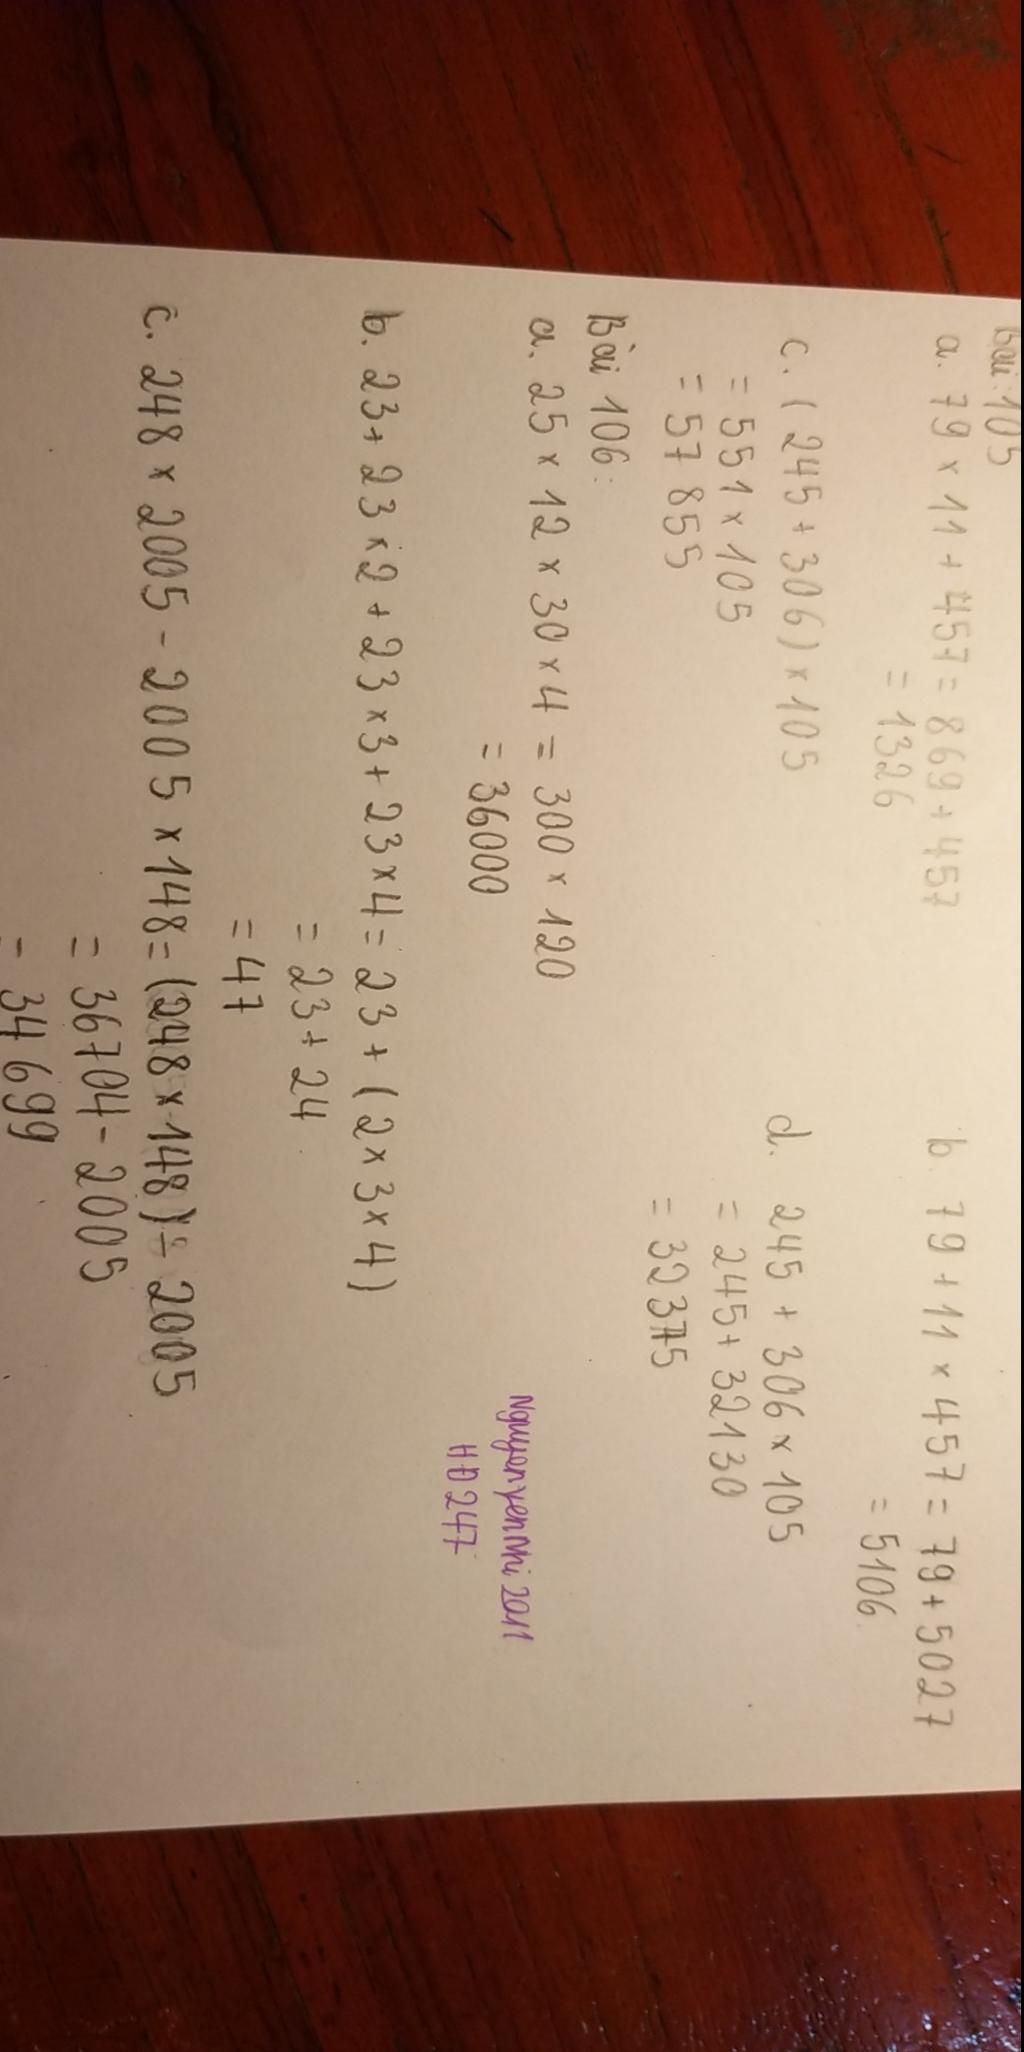 Bài: 105
a. 79 × 11 + 457 = 869 + 457
= 1326
b. 79 + 11 × 457 = 79 + 5027
= 5106
c. ( 245 + 306 ) × 105
= 551 × 105
= 57 855
d. 245 + 306 × 105
= 245 + 32130
= 32375
Bài 106:
a. 25 × 12 × 30 × 4 = 300 × 120
= 36000
b. 23 + 23 × 2 + 23 × 3 + 23 × 4 = 23 + ( 2 × 3 × 4 )
= 23 + 24
= 47
c. 248 × 2005 - 2005 × 148 = (248 × 148) - 2005
= 36704 - 2005
= 34 699
NguyenyenNhi 2011
HD247